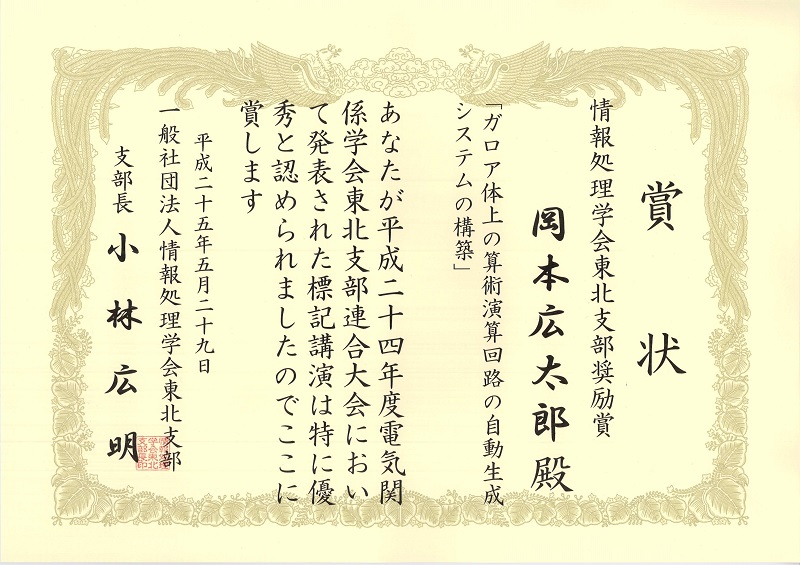 賞状
情報処理学会東北支部奨励賞
岡本広太郎殿
「ガロア体上の算術演算回路の自動生成
システムの構築」
あなたが平成二十四年度電気関
係学会東北支部連合大会におい
て発表された標記講演は特に優
秀と認められましたのでここに
賞します
平成二十五年五月二十九日
一般社団法人情報処理学会東北支部
支部長 小林広明